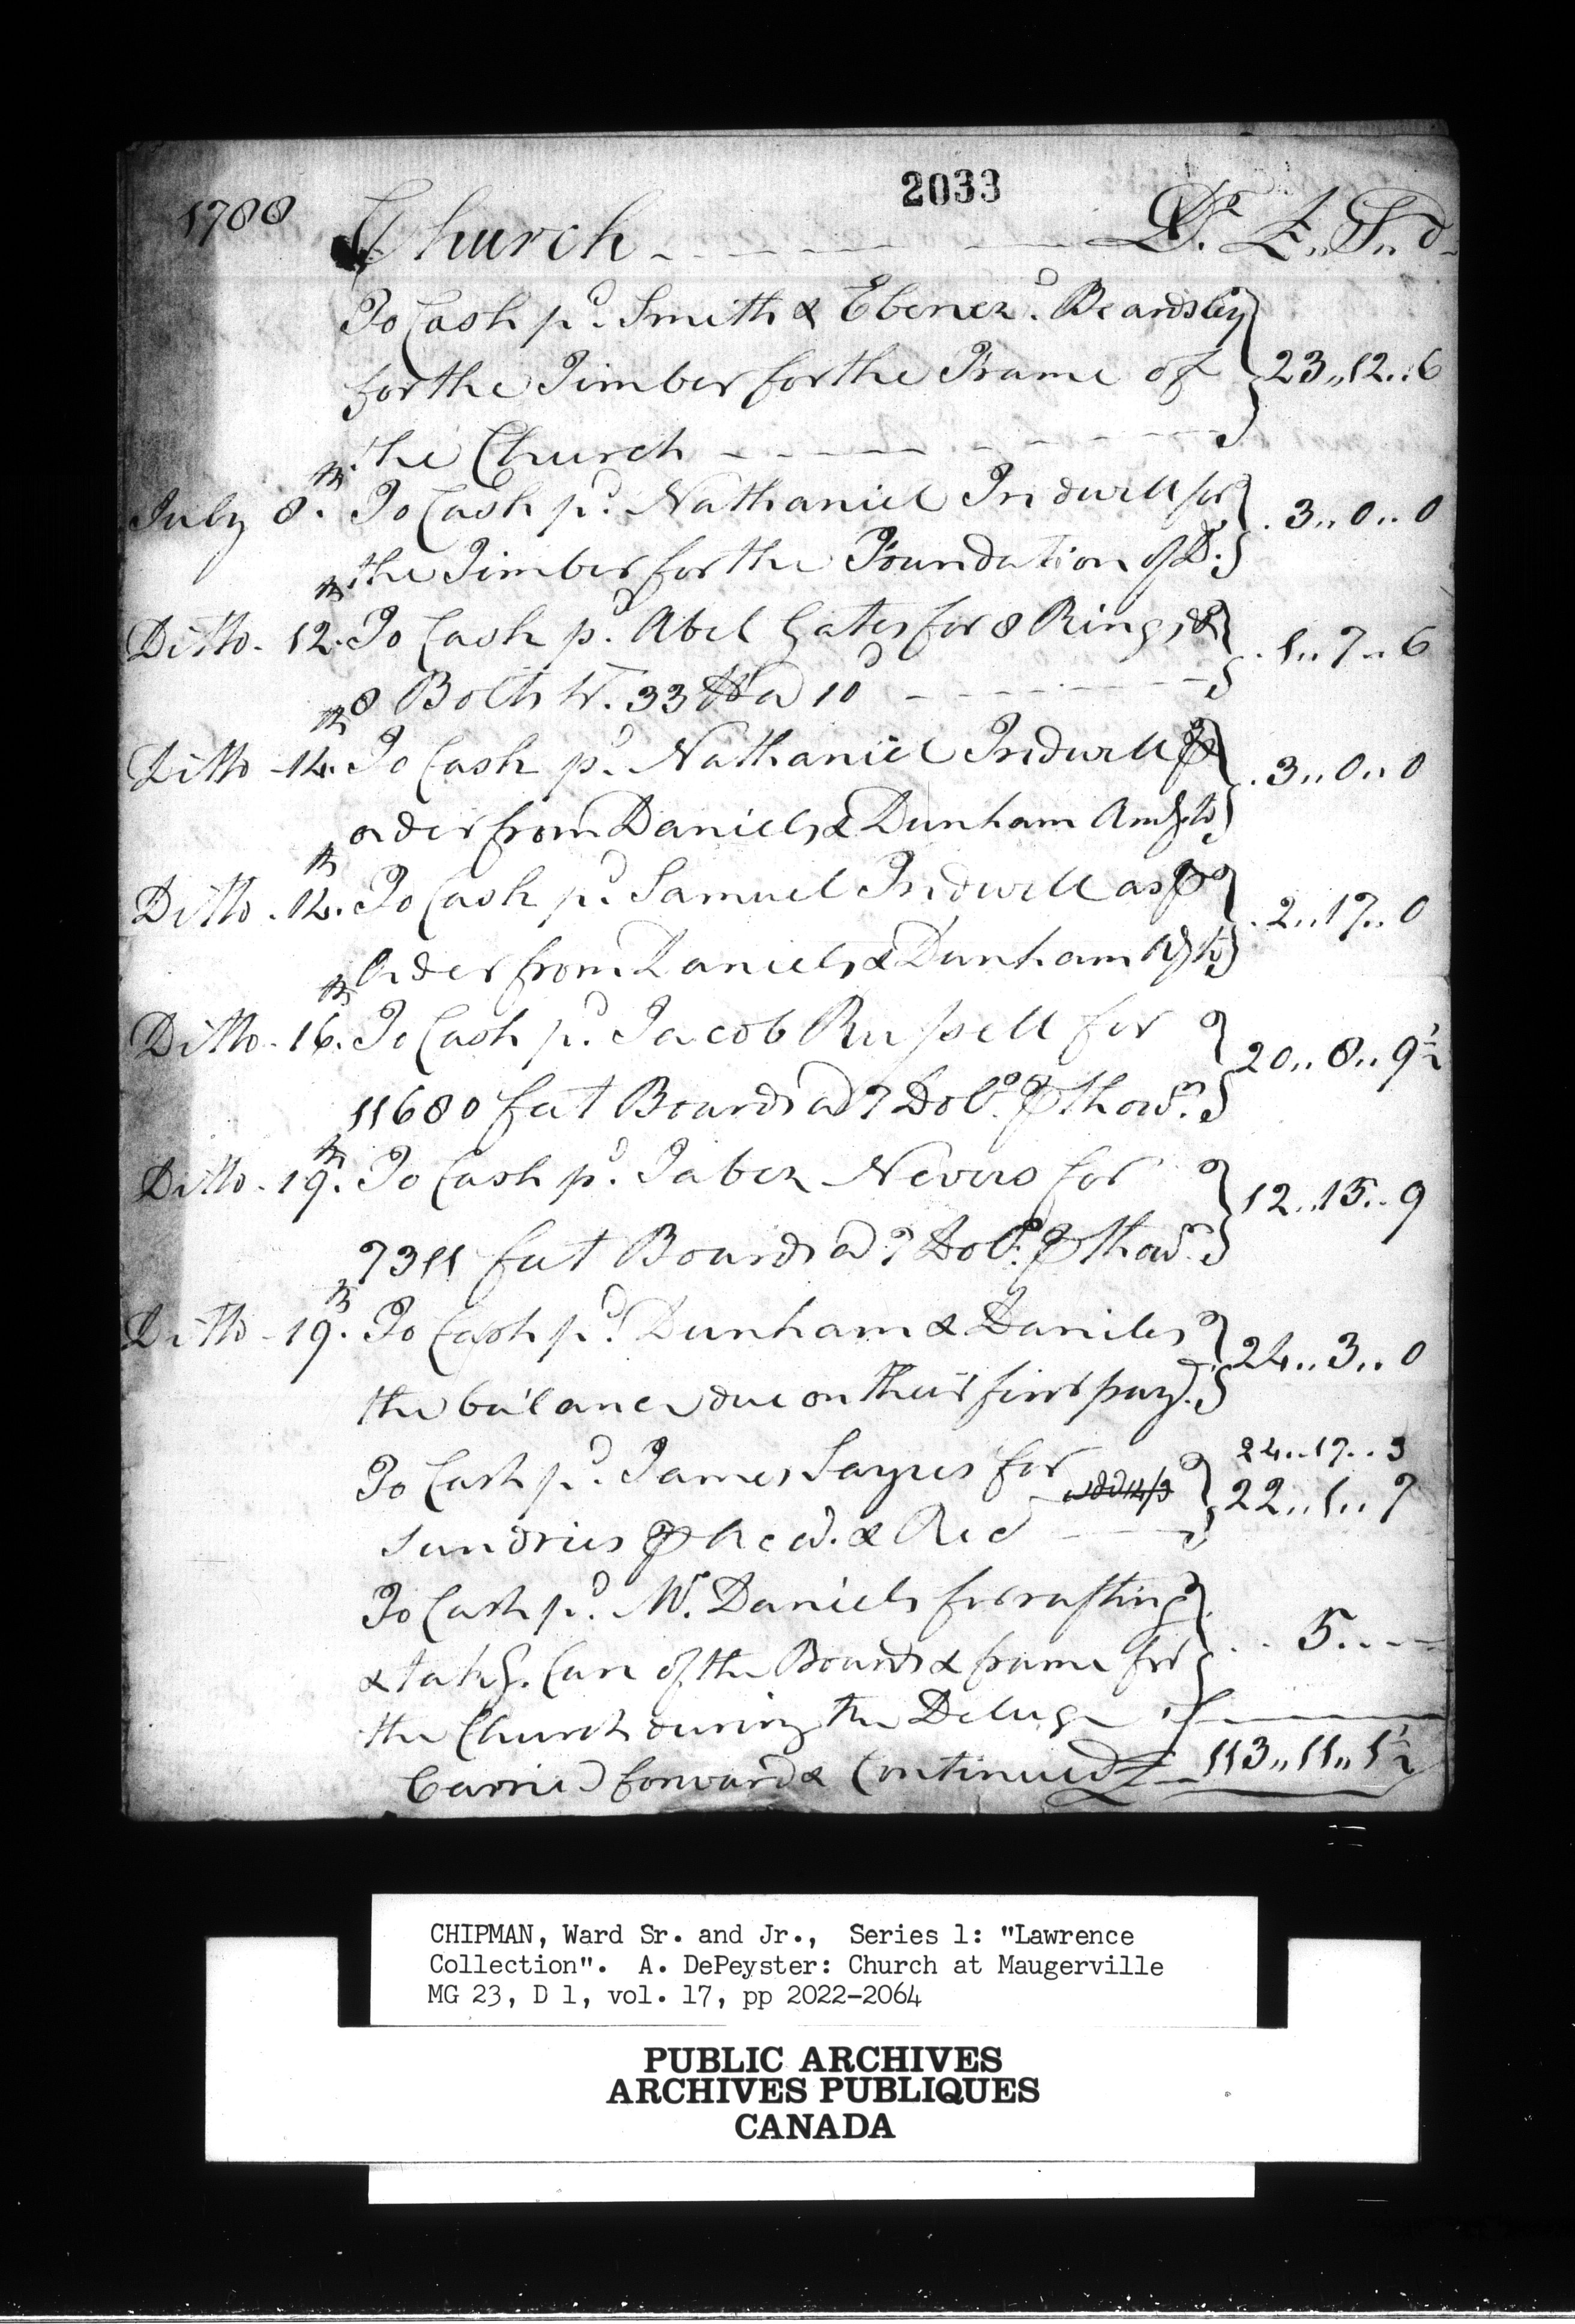 2033
1788 Church - - - - - Dr. £,, S,, d
To Cash pd. Smith & Ebenezr. Beardsley
for the Timber for the Frame of 23,,12..6
the Church - - - - - -
July 8th. To Cash pd. Nathaniel Tridwell for
the Timber for the Foundation of Do. 3..0..0
Ditto - 12th. To Cash pd. Abel Gates for 8 Rings &
8 Bolts Wt. 33 lb @ 10d - - - - - 1..7..6
Ditto - 14th. To Cash pd. Nathaniel Tridwell ⅌
order from Daniels & Dunham 3..0..0
Ditto - 14th. To Cash pd. Samuel Tridwell as ⅌
Order from Daniels & Dunham 2..17..0
Ditto - 16th. To Cash pd. Jacob Russell for
11680 feet Boards @ 7 Dols. ⅌ thousd. 20..8..9½
Ditto - 19th. To Cash pd. Jabez Nevers for
7311 feet Boards @ 7 Dols. ⅌ thousd. 12..15..9
Ditto - 19th. To Cash pd. Dunham & Daniels
the balance due on their first pay 24..3..0
To Cash pd. James Sayres for 24..17..3
sundries ⅌ Acct. & Rec - - 22..1..7
To Cash pd. Mr. Daniels for rafting
& takg. Care of the Boards & frame for 5..--
the Church during the Deluge
Carried forward & Continued £ 113,,11,,1½
CHIPMAN, Ward Sr. and Jr., Series 1: "Lawrence
Collection". A. DePeyster: Church at Maugerville
MG 23, D 1, vol. 17, pp 2022-2064
PUBLIC ARCHIVES
ARCHIVES PUBLIQUES
CANADA